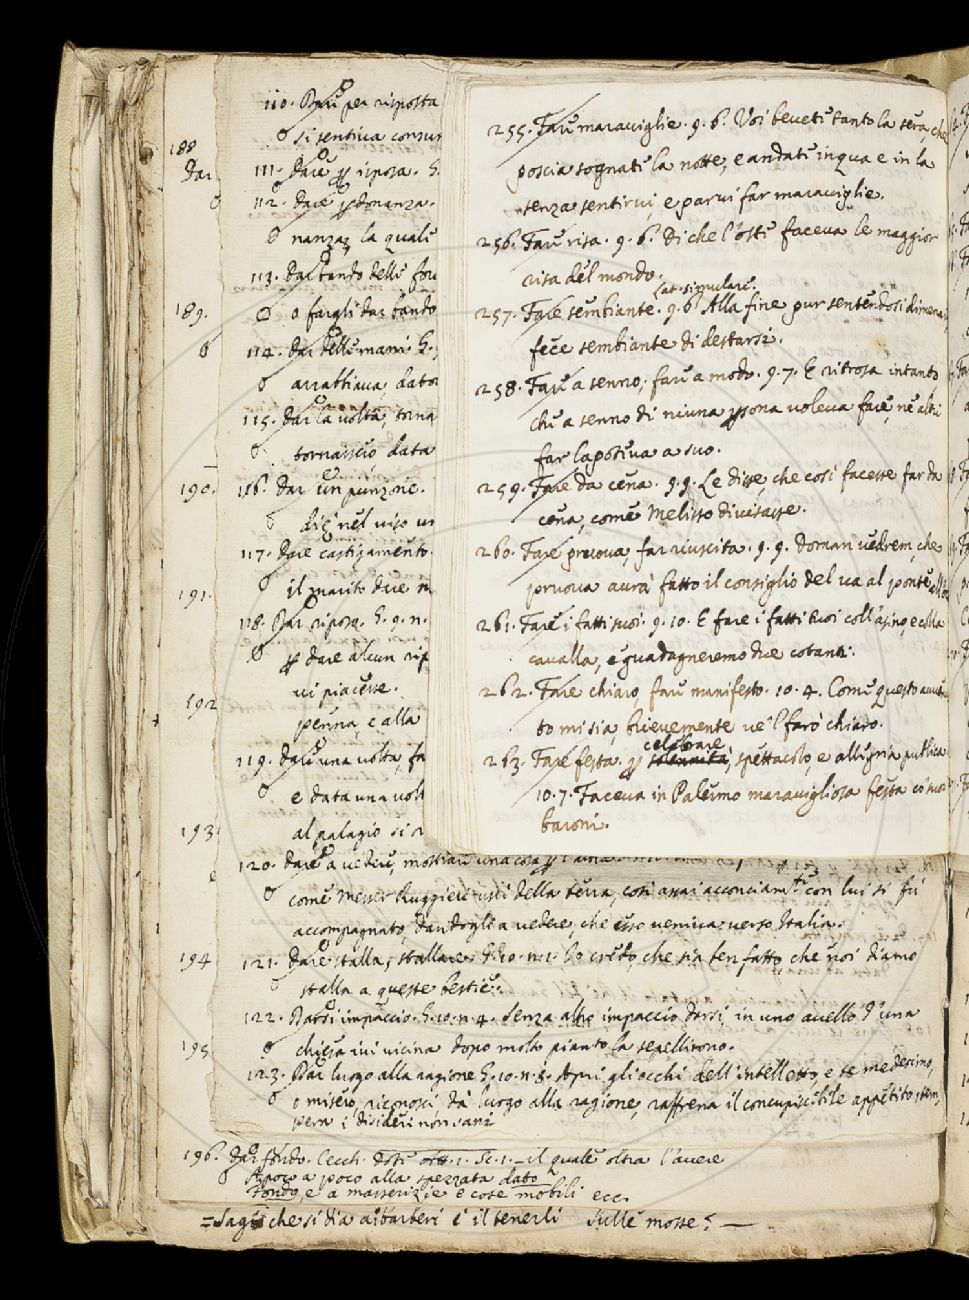 188
Dar
189.
190.
191.
192
193
194
195
110. Dare per risposta
si sentiva consum
111. Dare riposa. G.
112. Dare perdonanza.
nanza, la quale
113. Dar bando delle for
o fargli dar bando
114. Dar delle mani. G.
arrabbiava, dator
115. Dar la volta, torna
tornassero, data
116. Dar un punzone.
diè nel viso un
117. Dare castigamento
il marito dare m
118. Dar riposo. G. 9. n.
dare alcun rip
vi piacesse.
penna, e alla
119. Dare una volta, fa
e data una volt
al palagio si r
120. Dare a vedere, mostrare una cosa
come Messer Ruggieri uscì della terra, così assai acconciam.te con lui si fu
accompagnato, dandogli a vedere, che esso veniva verso Italia.
121. Dare stalla, stallare. G. 10. n. 2. Io credo, che sia ben fatto, che noi diamo
stalla a queste bestie.
122. Darsi impaccio. G. 10. n. 4. Senza altro impaccio darsi, in uno avello d'una
chiesa ivi vicina dopo molto pianto la sepellirono.
123. Dar luogo alla ragione G. 10. n. 8. Apri gli occhi dell'intelletto, e te medesimo,
o misero, riconosci, dà luogo alla ragione, raffrena il concupiscibile appetito, tem,
pera i disiderj non sani
196. Dar fondo. Cecch. Dote att. 1. Sc. 1. – il quale oltra l'avere
A poco a poco alla spezzata dato
Fondo, e a masserizie e cose mobili ecc.
= Sagg che si dia a' barberi e il tenerli sulle mosse? —
255. Fare maraviglie. 9. 6. Voi bevete tanto la sera, che
poscia sognate la notte, e andate in qua e in la
senza sentirvi, e parvi far maraviglie.
256. Fare risa. 9. 6. Di che l'oste faceva le maggior
risa del mondo.
at. simulare.
257. Fare sembiante. 9. 6. Alla fine pur sentendosi dimenar
fece sembiante di destarsi.
258. Fare a senno, fare a modo. 9. 7. E ritrosa intanto
che a senno di niuna persona voleva fare, nè altri
far la poteva a suo.
259. Fare da cena. 9. 9. Le disse, che così facesse far da
cena, come Melisso divisasse.
260. Fare pruova, far riuscita. 9. 9. Doman vedrem, che
pruova avrà fatto il consiglio del va al ponte all'oca
261. Fare i fatti suoi. 9. 10. E fare i fatti tuoi coll'asino, e colla
cavalla, e guadagneremo due cotanti.
262. Fare chiaro, fare manifesto. 10. 4. Come questo avvenu
to mi sia, brievemente ve 'l farò chiaro.
celebrare
263. Fare festa solennità, spettacolo, e allegria publica
10. 7. Faceva in Palermo maravigliosa festa co' suoi
baroni.